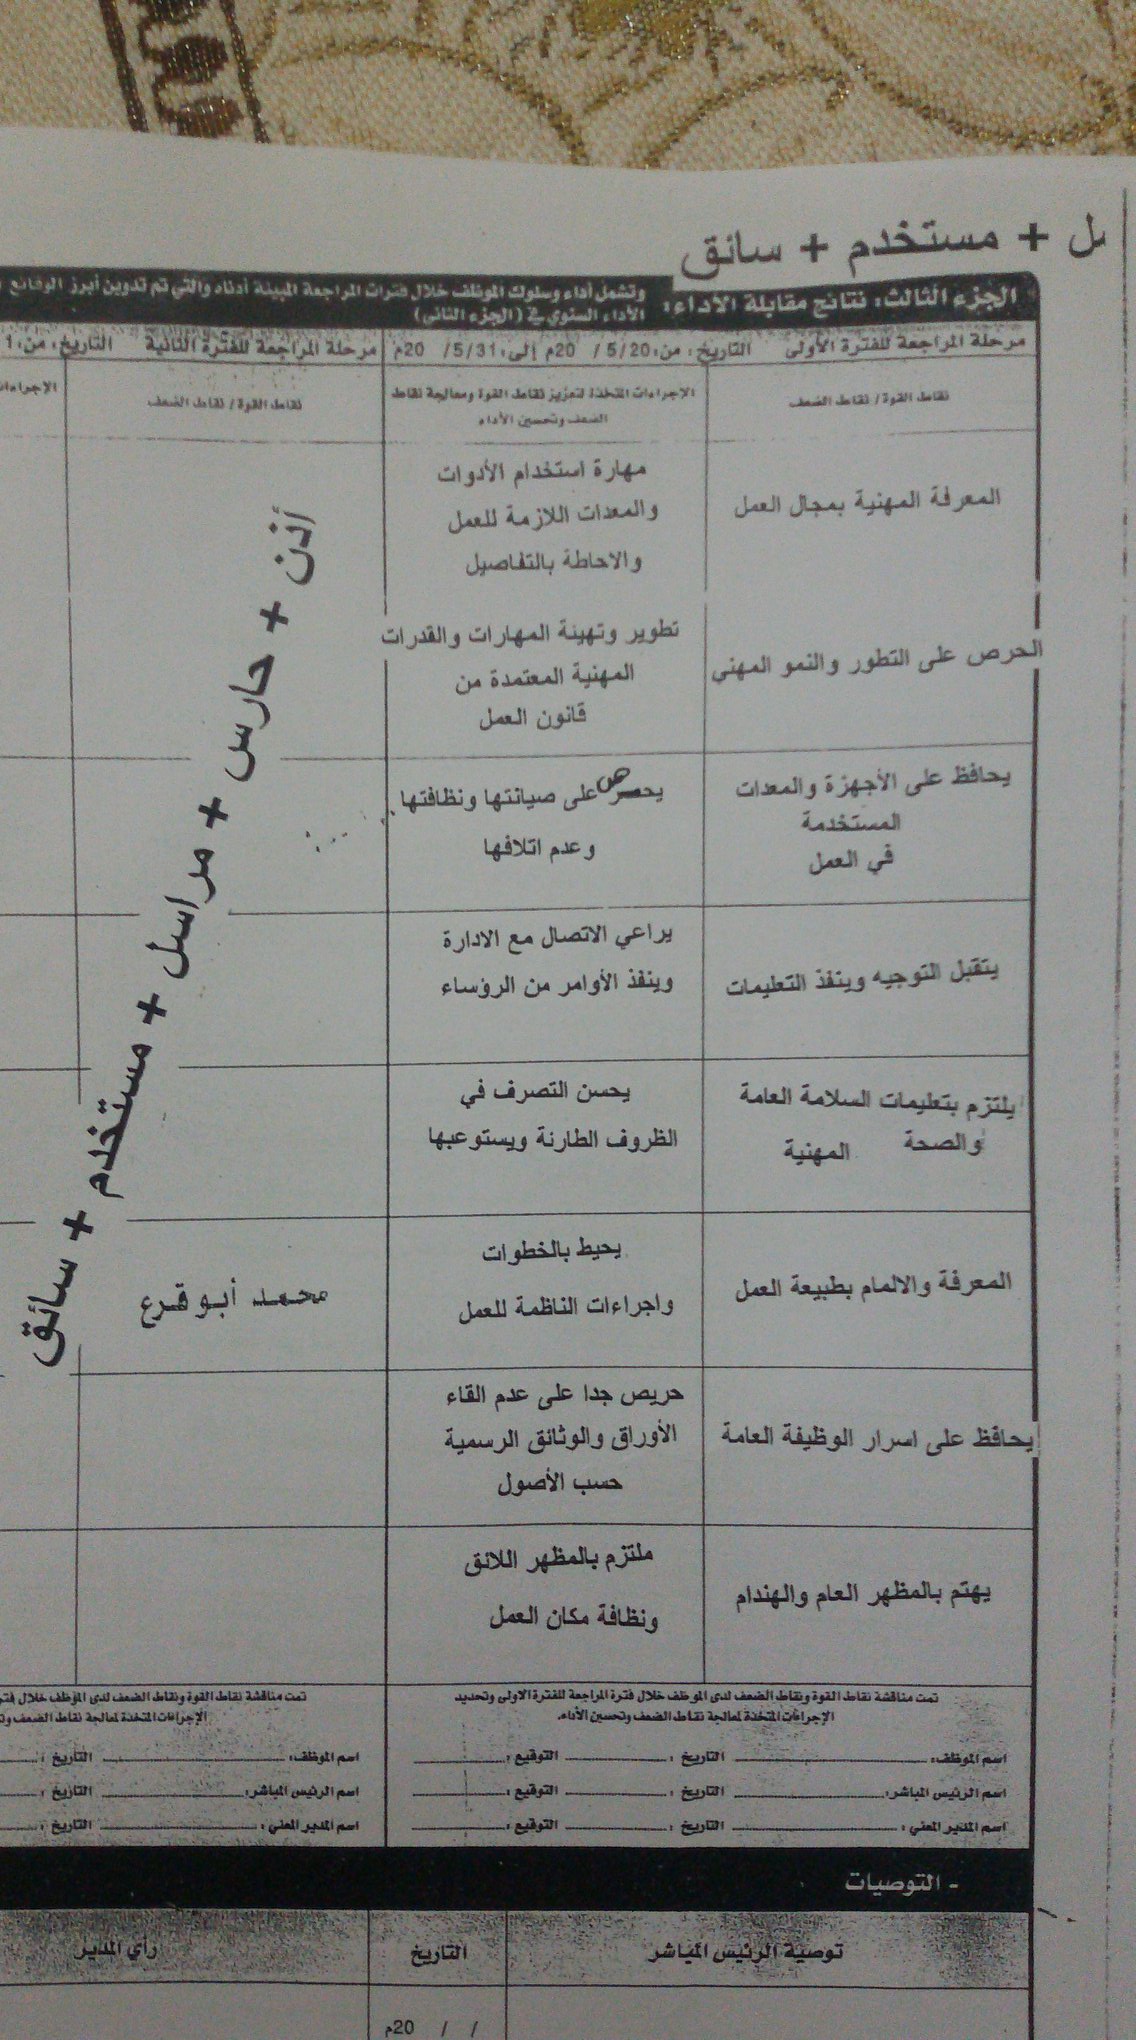 سل + مستخدم + سائق
الجزء الثالث: نتائج مقابلة الأداء:
وتشمل أداء وسلوك الموظف خلال فترات المراجعة المبينة أدناه والتي تم تدوين أبرز الوقائع
الأداء السنوي في (الجزء الثاني)
مرحلة المراجعة للفترة الأولى التاريخ: من: 5/20/ 20م إلى: 5/31/ 20م
مرحلة المراجعة للفترة الثانية التاريخ: من: 1
نقاط القوة / نقاط الضعف
الإجراءات المتخذة لتعزيز نقاط القوة ومعالجة نقاط
الضعف وتحسين الأداء
نقاط القوة / نقاط الضعف
الإجراءات
المعرفة المهنية بمجال العمل
مهارة استخدام الأدوات
والمعدات اللازمة للعمل
والاحاطة بالتفاصيل
الحرص على التطور والنمو المهني
تطوير وتهيئة المهارات والقدرات
المهنية المعتمدة من
قانون العمل
يحافظ على الأجهزة والمعدات
المستخدمة
في العمل
يحرص على صيانتها ونظافتها
وعدم اتلافها
يتقبل التوجيه وينفذ التعليمات
يراعي الاتصال مع الادارة
وينفذ الأوامر من الرؤساء
يلتزم بتعليمات السلامة العامة
والصحة المهنية
يحسن التصرف في
الظروف الطارئة ويستوعبها
المعرفة والالمام بطبيعة العمل
يحيط بالخطوات
واجراءات الناظمة للعمل
يحافظ على اسرار الوظيفة العامة
حريص جدا على عدم القاء
الأوراق والوثائق الرسمية
حسب الأصول
يهتم بالمظهر العام والهندام
ملتزم بالمظهر اللائق
ونظافة مكان العمل
أذن + حارس + مراسل + مستخدم + سائق
محمد أبو قرع
تمت مناقشة نقاط القوة ونقاط الضعف لدى الموظف خلال فترة المراجعة للفترة الاولى وتحديد
الإجراءات المتخذة لمعالجة نقاط الضعف وتحسين الأداء.
اسم الموظف: التاريخ : التوقيع :
اسم الرئيس المباشر: التاريخ : التوقيع :
اسم المدير المعني : التاريخ : التوقيع :
تمت مناقشة نقاط القوة ونقاط الضعف لدى الموظف خلال فتر
الإجراءات المتخذة لمعالجة نقاط الضعف وت
اسم الموظف: التاريخ :
اسم الرئيس المباشر: التاريخ :
اسم المدير المعني : التاريخ :
- التوصيات
توصية الرئيس المباشر التاريخ رأي المدير
/ / 20م